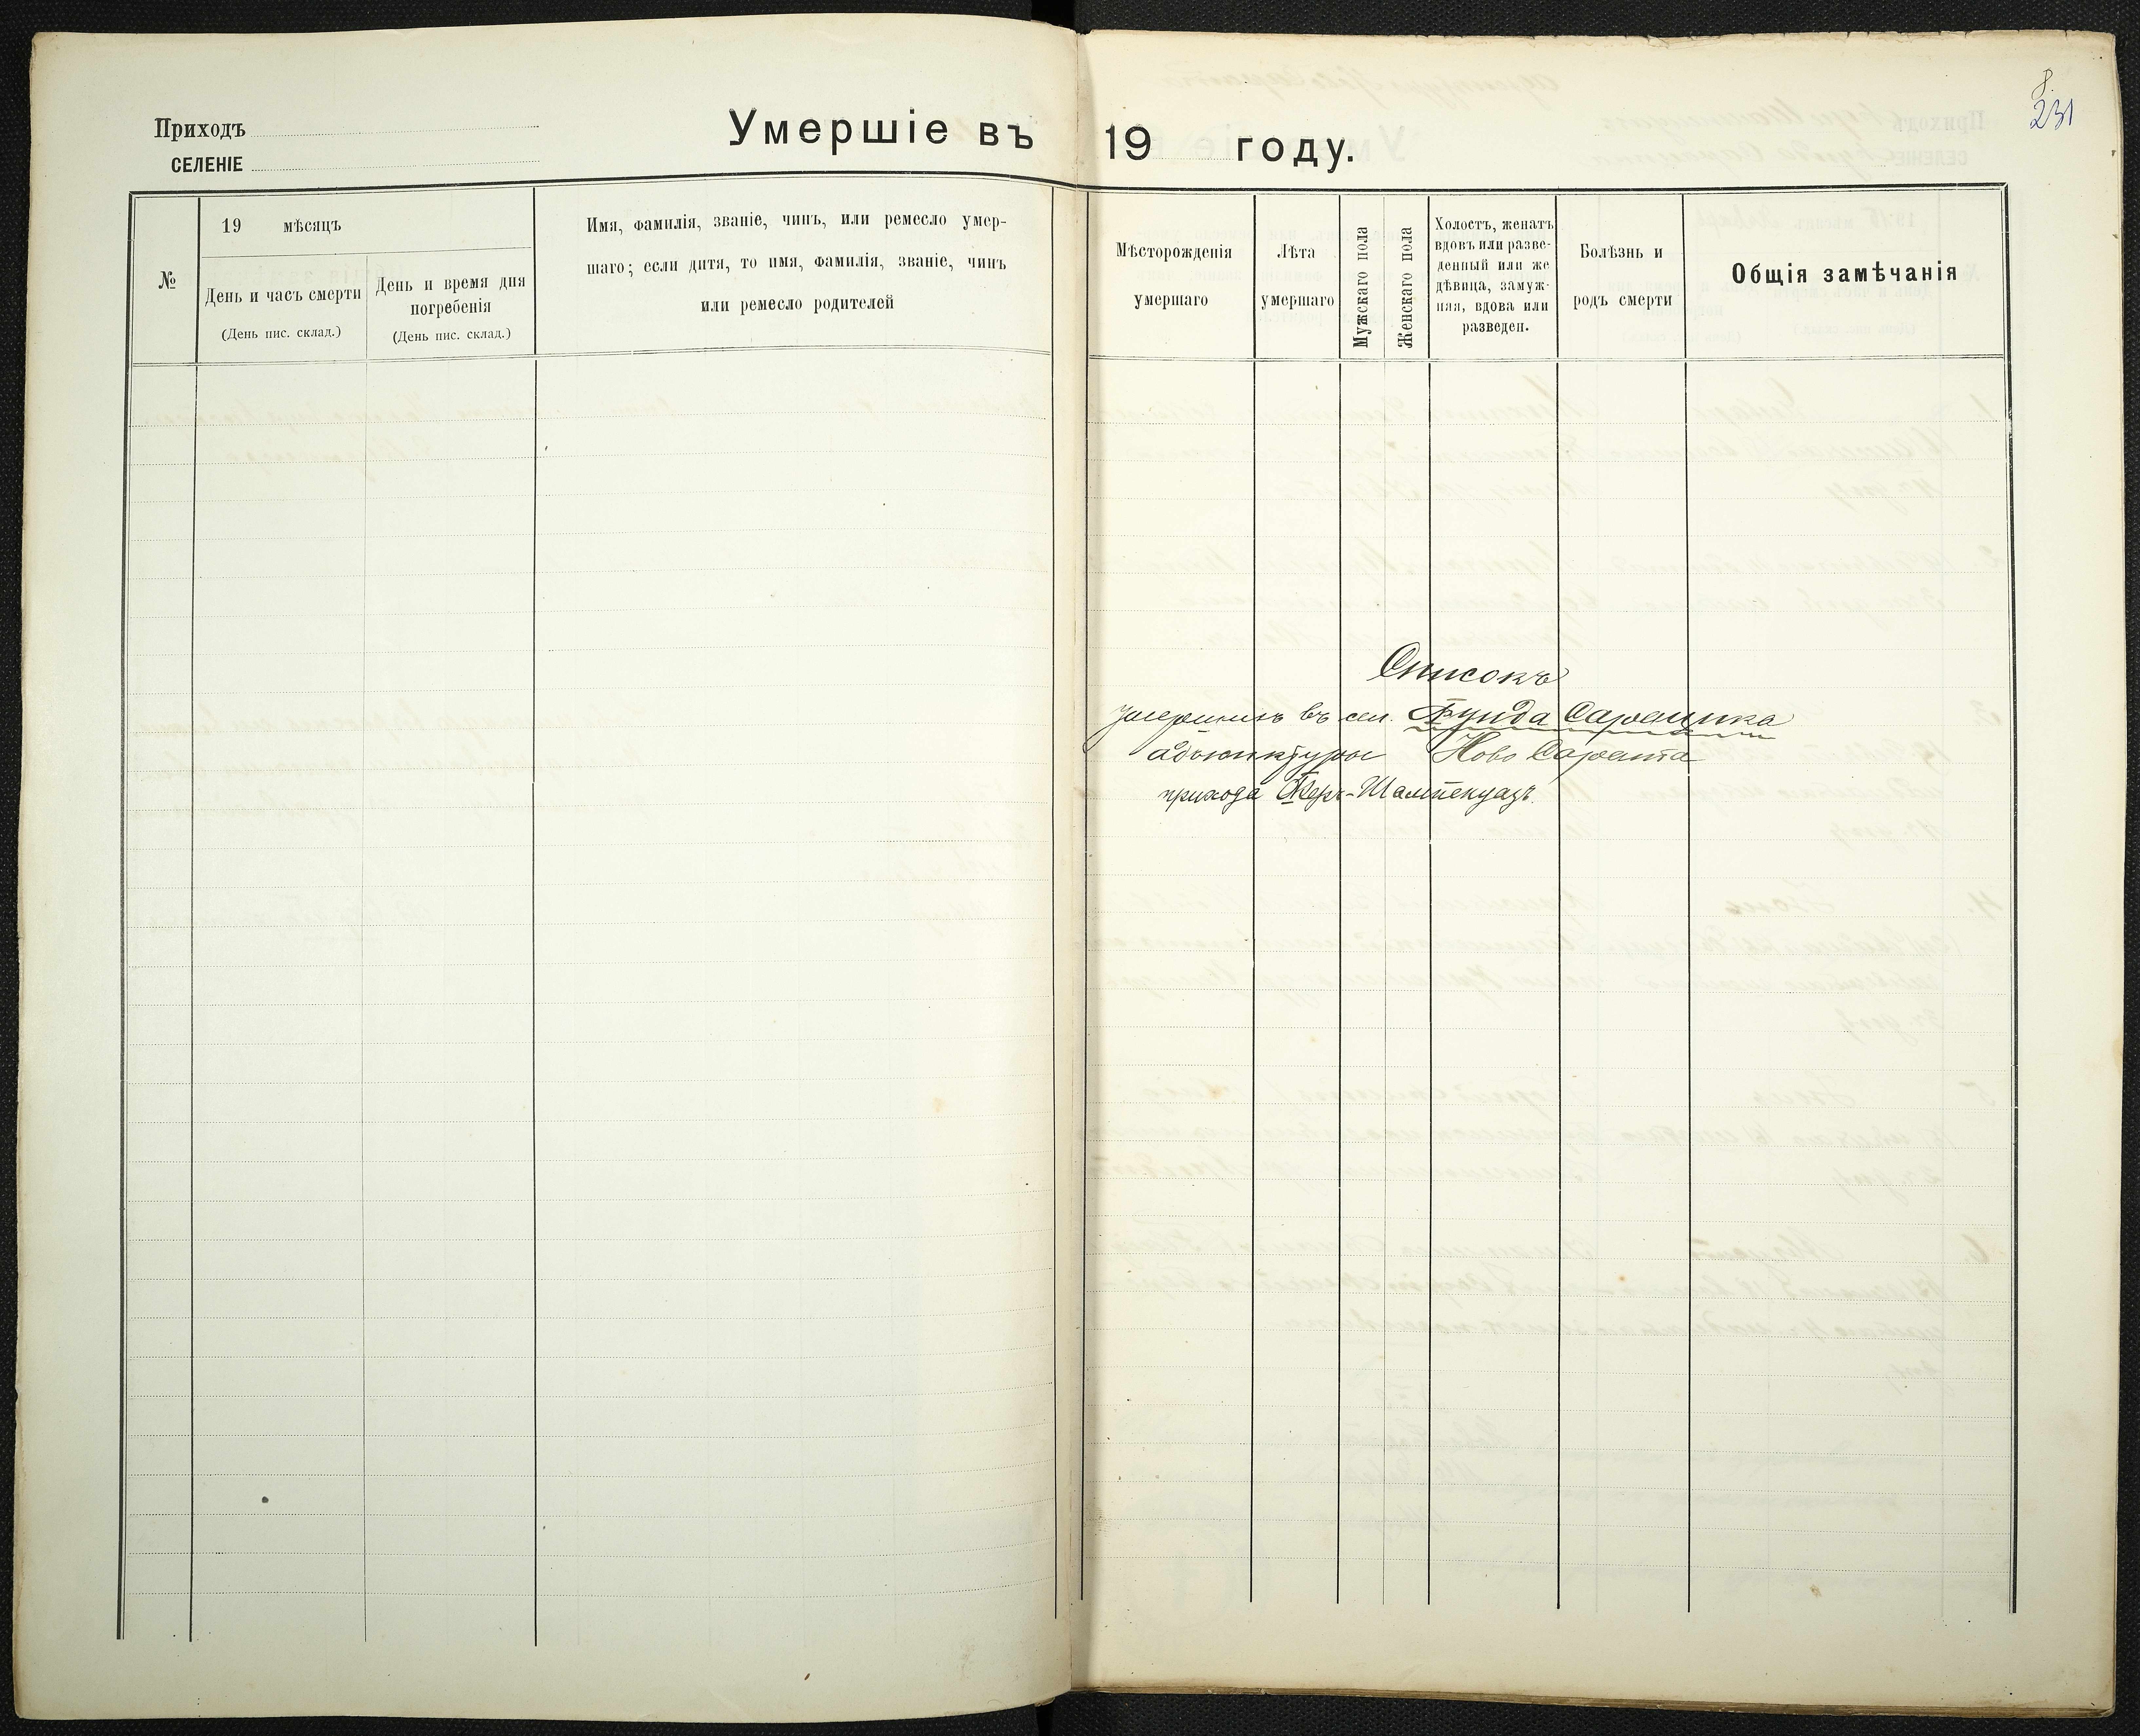 Приходъ
СЕЛЕНІЕ
Умершіе въ 19 году.
231
№
19 мѣсяцъ
День и часъ смерти
(День пис. склад.)
День и время дня
погребенія
(День пис. склад.)
Имя, фамилія, званіе, чинъ, или ремесло умер-
шаго; если дитя, то имя, фамилія, званіе, чинъ
или ремесло родителей
Мѣсторожденія
умершаго
Лѣта
умершаго
Мужскаго пола
Женскаго пола
Холостъ, женатъ
вдовъ или разве-
денный или же
дѣвица, замуж-
няя, вдова или
разведен.
Болѣзнь и
родъ смерти
Общія замѣчанія
Списокъ
умершихъ въ сел. Фунда Сарацика
адъюнктуры Ново Сарата
прихода Феръ-Шампенуазъ.